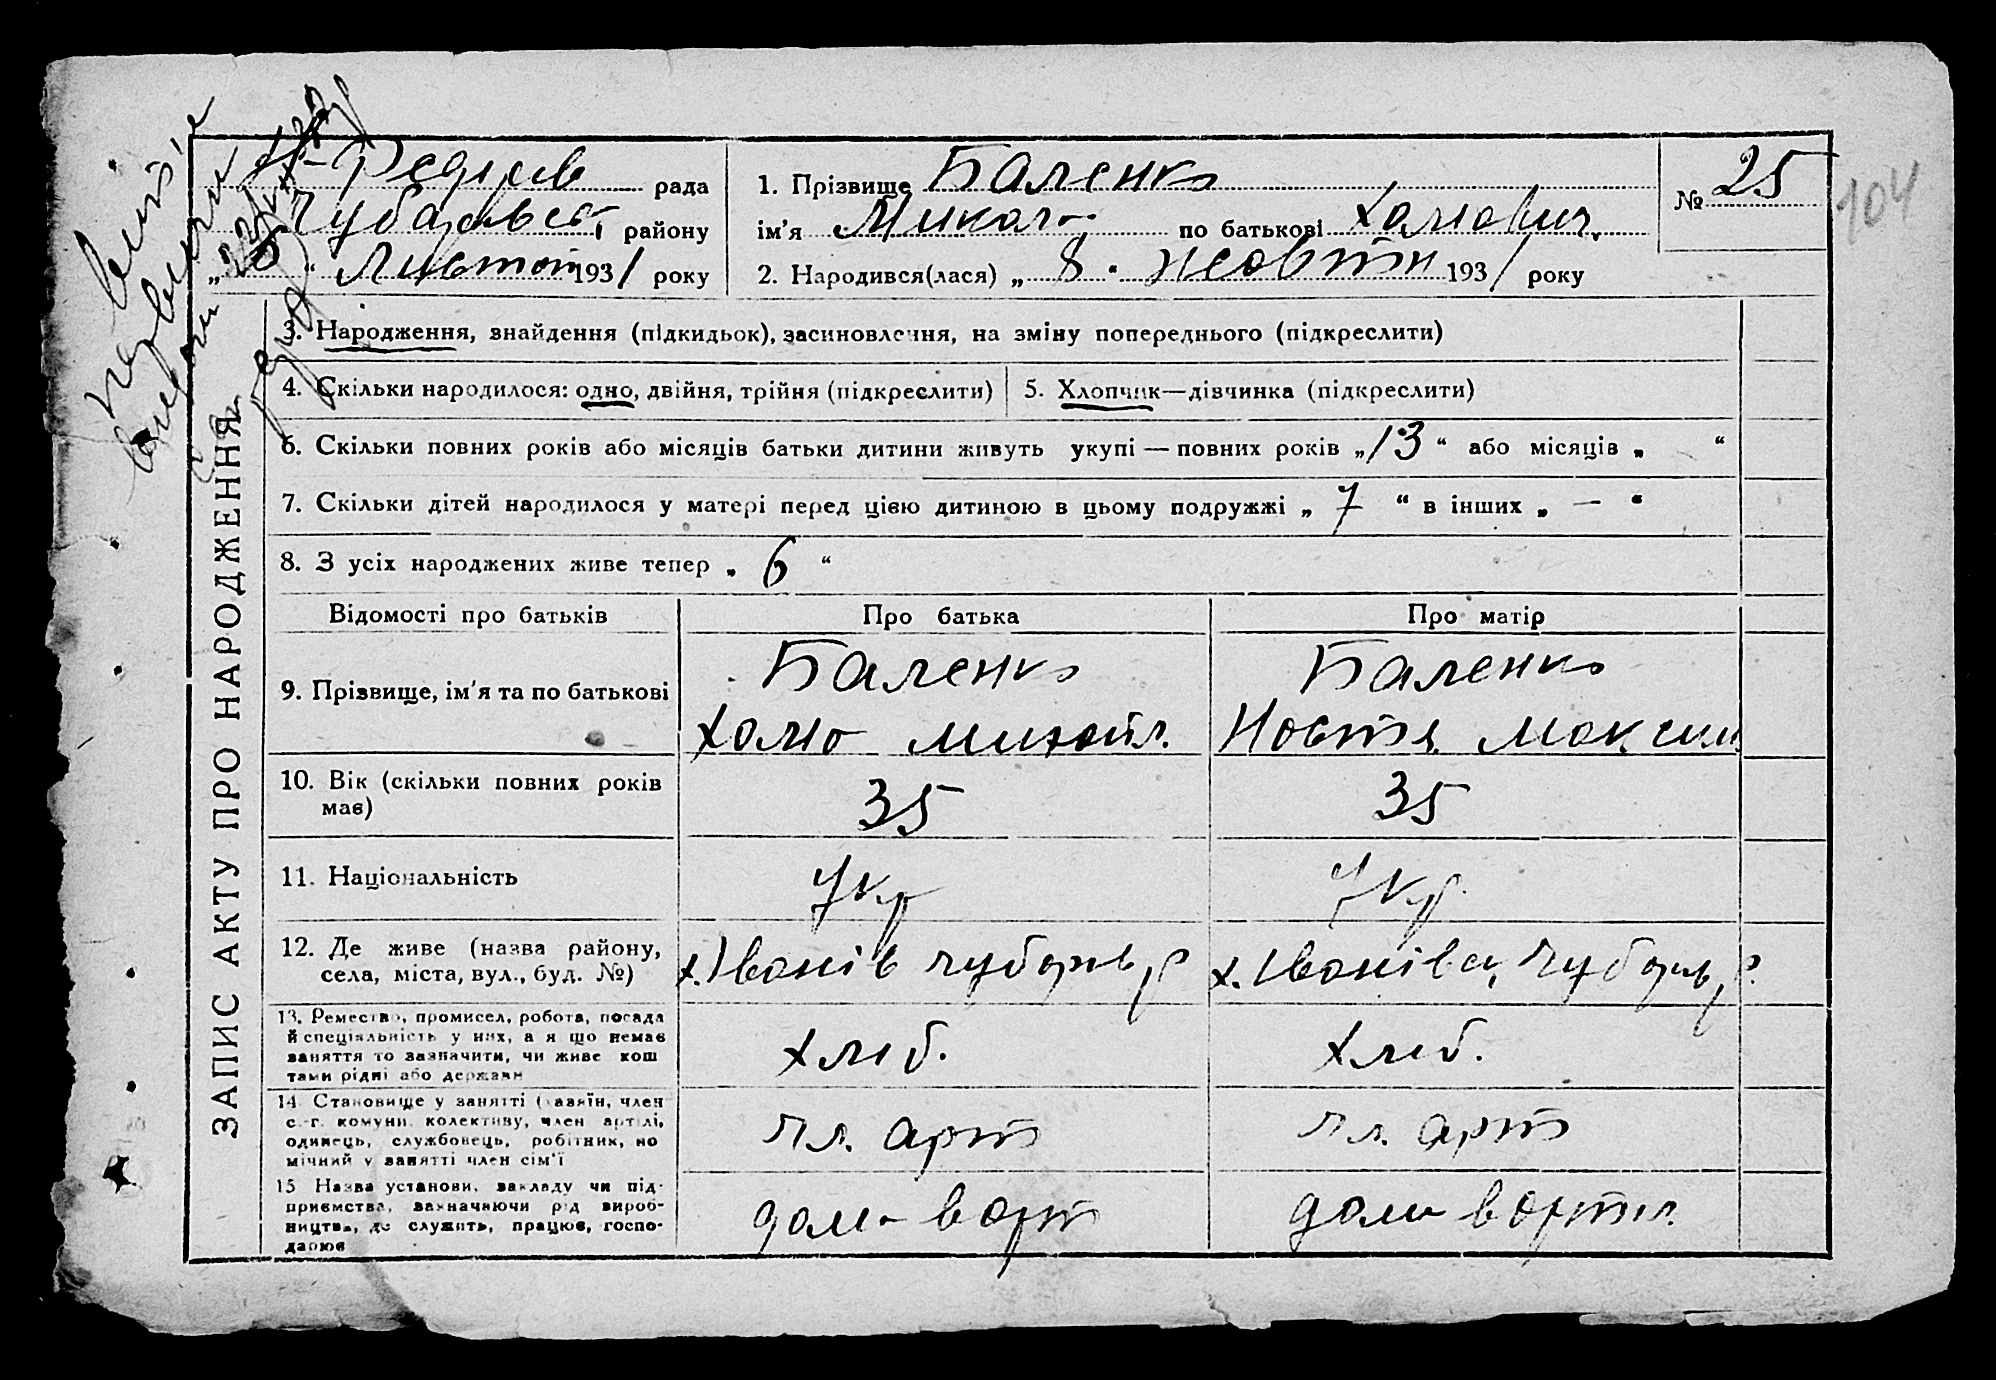 Федорів рада
Чубарівськ району
" " Листоп 1931 року
1. Прізвище Баленко
ім'я Микола по батькові Хомович
2. Народився(лася) „ 8 " жовтн 1931 року
№ 25
104
ЗАПИС АКТУ ПРО НАРОДЖЕННЯ
3. Народження, знайдення (підкидьок), засиновлення, на зміну попереднього (підкреслити)
4. Скільки народилося: одно, двійня, трійня (підкреслити)
5. Хлопчик—дівчинка (підкреслити)
6. Скільки повних років або місяців батьки дитини живуть укупі — повних років „ 13 “ або місяців „ “
7. Скільки дітей народилося у матері перед цією дитиною в цьому подружжі „ 7 “ в інших „ — “
8. З усіх народжених живе тепер „ 6 “
Відомості про батьків Про батька Про матір
9. Прізвище, ім'я та по батькові
Баленко
Хома Михайл.
Баленко
Настя Максим
10. Вік (скільки повних років має)
35 35
11. Національність
Укр Укр.
12. Де живе (назва району,
села, міста, вул., буд. №)
х. Іванів Чубарів, р х. Іванівка, Чубарів, р.
13. Ремество, промисел, робота, посада
й спеціяльність у них, а я що немає
заняття то зазначити, чи живе кош
тами рідні або держави
хліб. хліб.
14. Становище у занятті (хазяїн, член
с.-г. комуни, колективу, член артілі,
одинець, службовець, робітник, по
мічний у занятті член сім'ї
чл. арт чл. арт
15 Назва установи, закладу чи під-
приємства, зазначаючи рід вироб-
ництва, де служить, працює, госпо-
дарює
дома в арт дома в артіл.